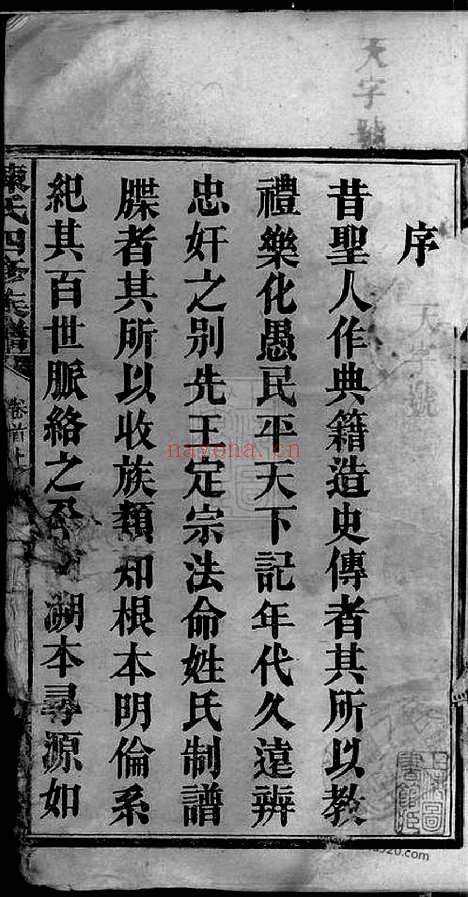 天字號
序
天字號
昔聖人作典籍造史傳者其所以教
禮樂化愚民平天下記年代久遠辨
忠奸之別先王定宗法命姓氏制譜
牒者其所以收族類知根本明倫系
紀其百世脈絡之 溯本尋源如
陳氏四修族譜
卷首上
nayona.cn
圖書館